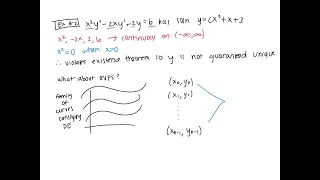 Ex #2 x²y" - 2xy' - 2y = 6 has soln y = cx² + x + 3
x², -2x, 2, 6 → continuous on (-∞,∞)
x² = 0 when x=0
∴ violates existence theorem so y is not guaranteed unique
what about BVPs?
family of curves satisfying DE
(x₀, y₀)
(x₁, y₁)
⋮
(xₙ₋₁, yₙ₋₁)